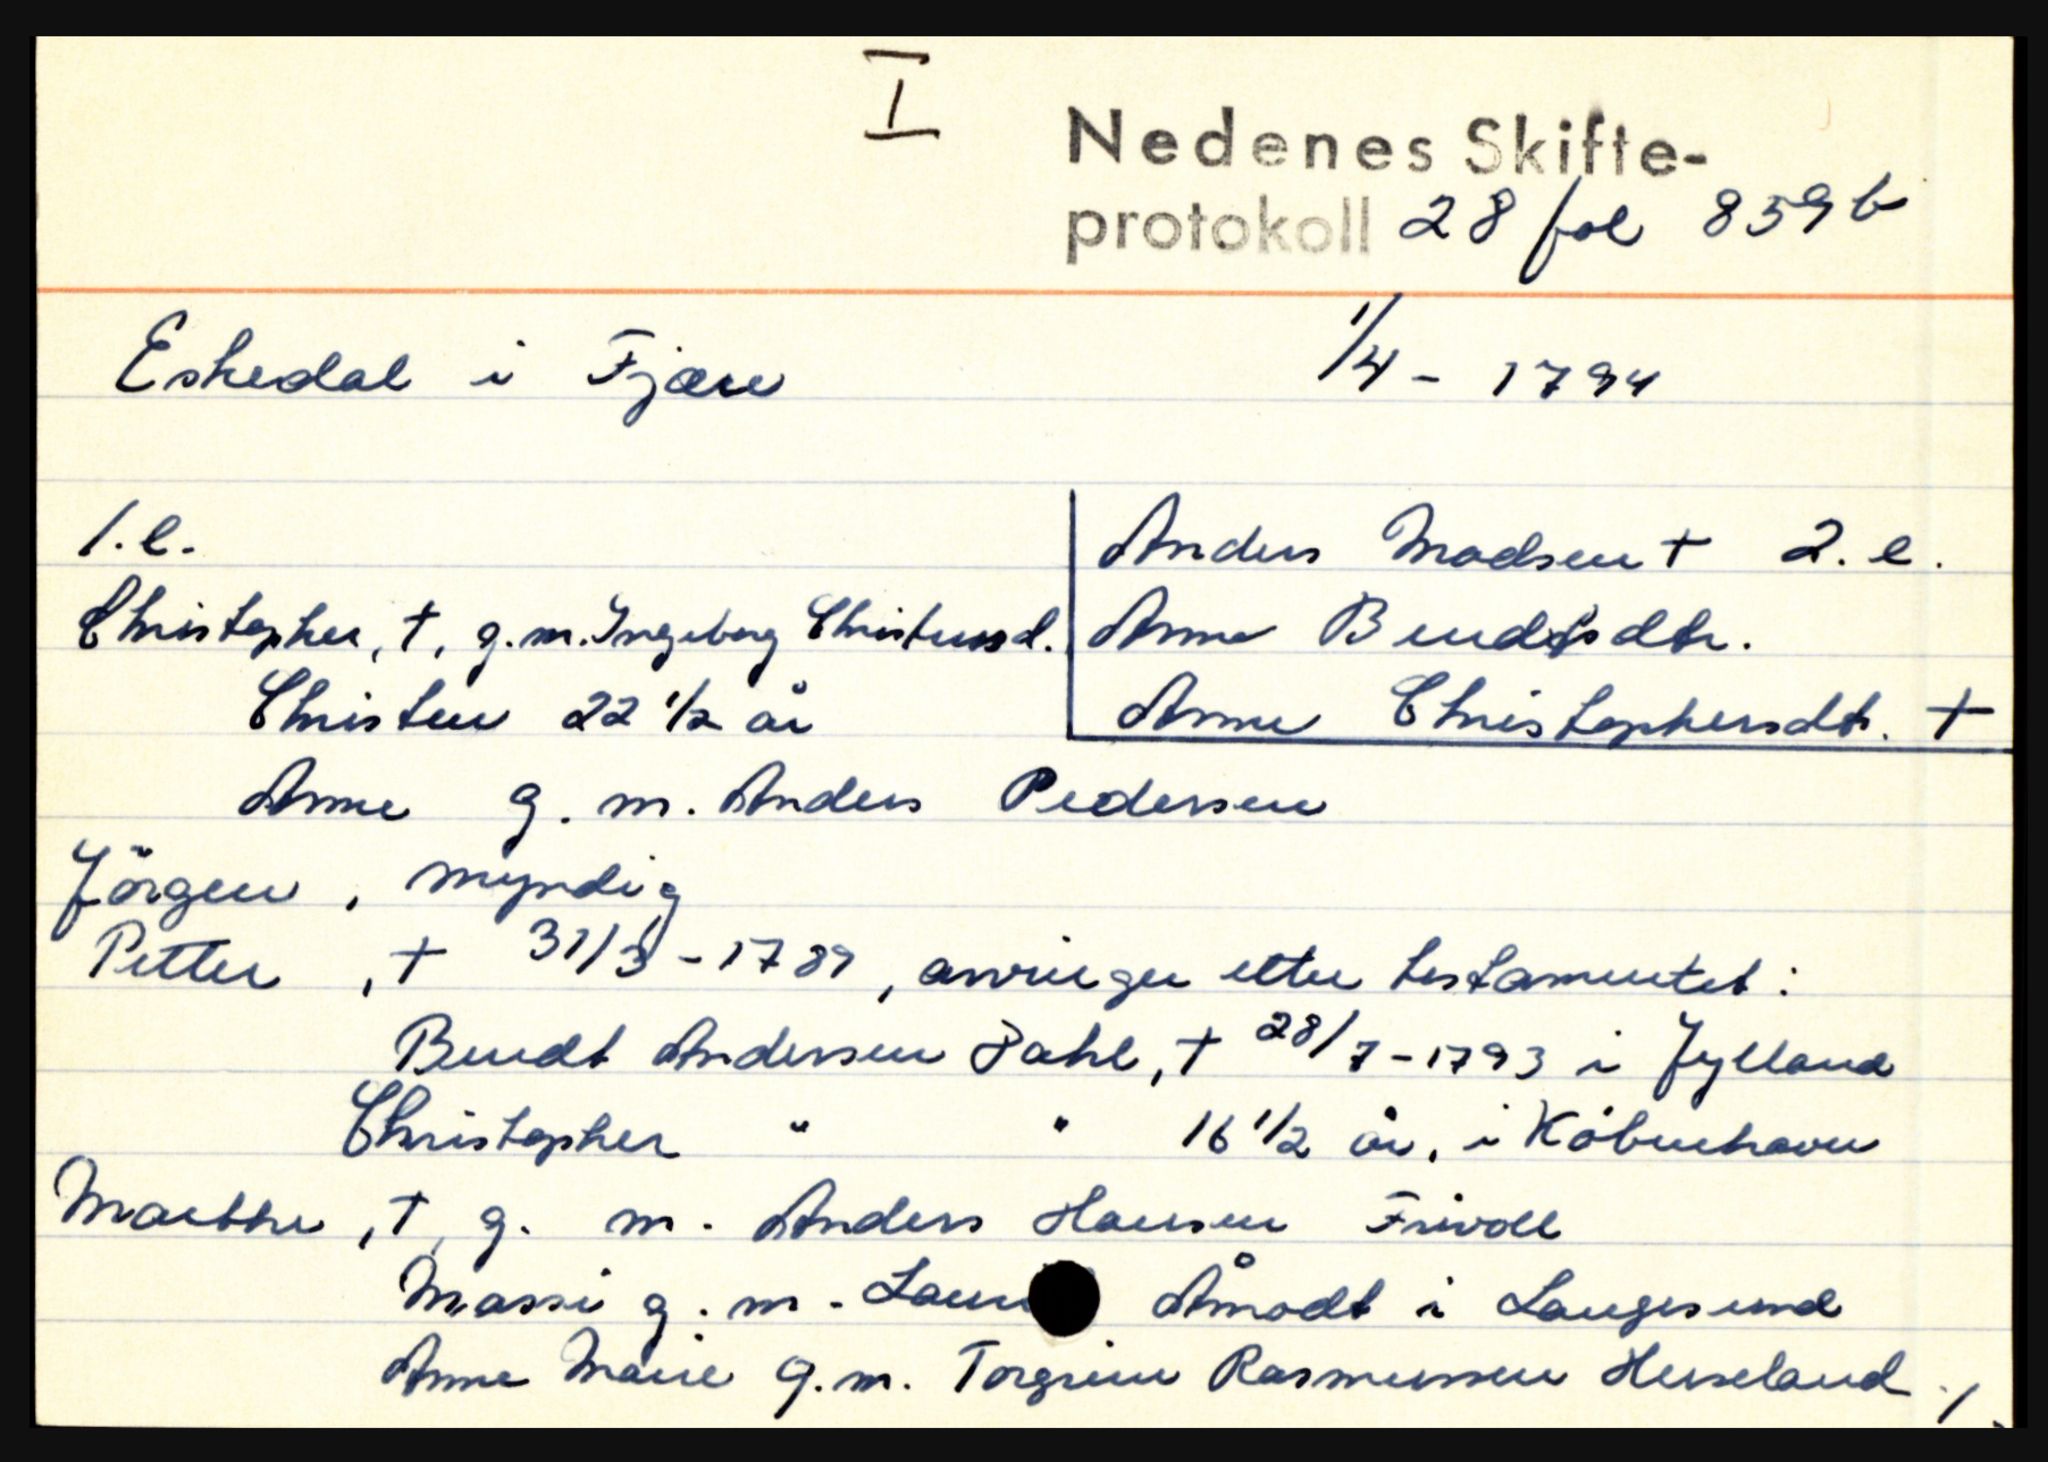 I
Nedenes Skifte-
protokoll 28 fol 859b
Eskedal i Fjære 1/4 - 1794
1.e. Anders Madsen † 2.e.
Christopher, †, g.m. Ingeborg Christensd. Anne Bendtsdtr.
Christen 22 1/2 år Anne Christophersdtr. †
Anne g. m. Anders Pedersen
Jörgen, myndig
Petter, † 31/3-1789, arvinger etter testamentet:
Bendt Andersen Dahl, † 28/7-1793 i Jylland
Christopher " " 16 1/2 år, i Köbenhavn
Marthe, †, g. m. Anders Hansen Frivoll
Massi g. m. Åmodt i Langesund
Anne Marie g.m. Torgrim Rasmussen Hesseland ./.